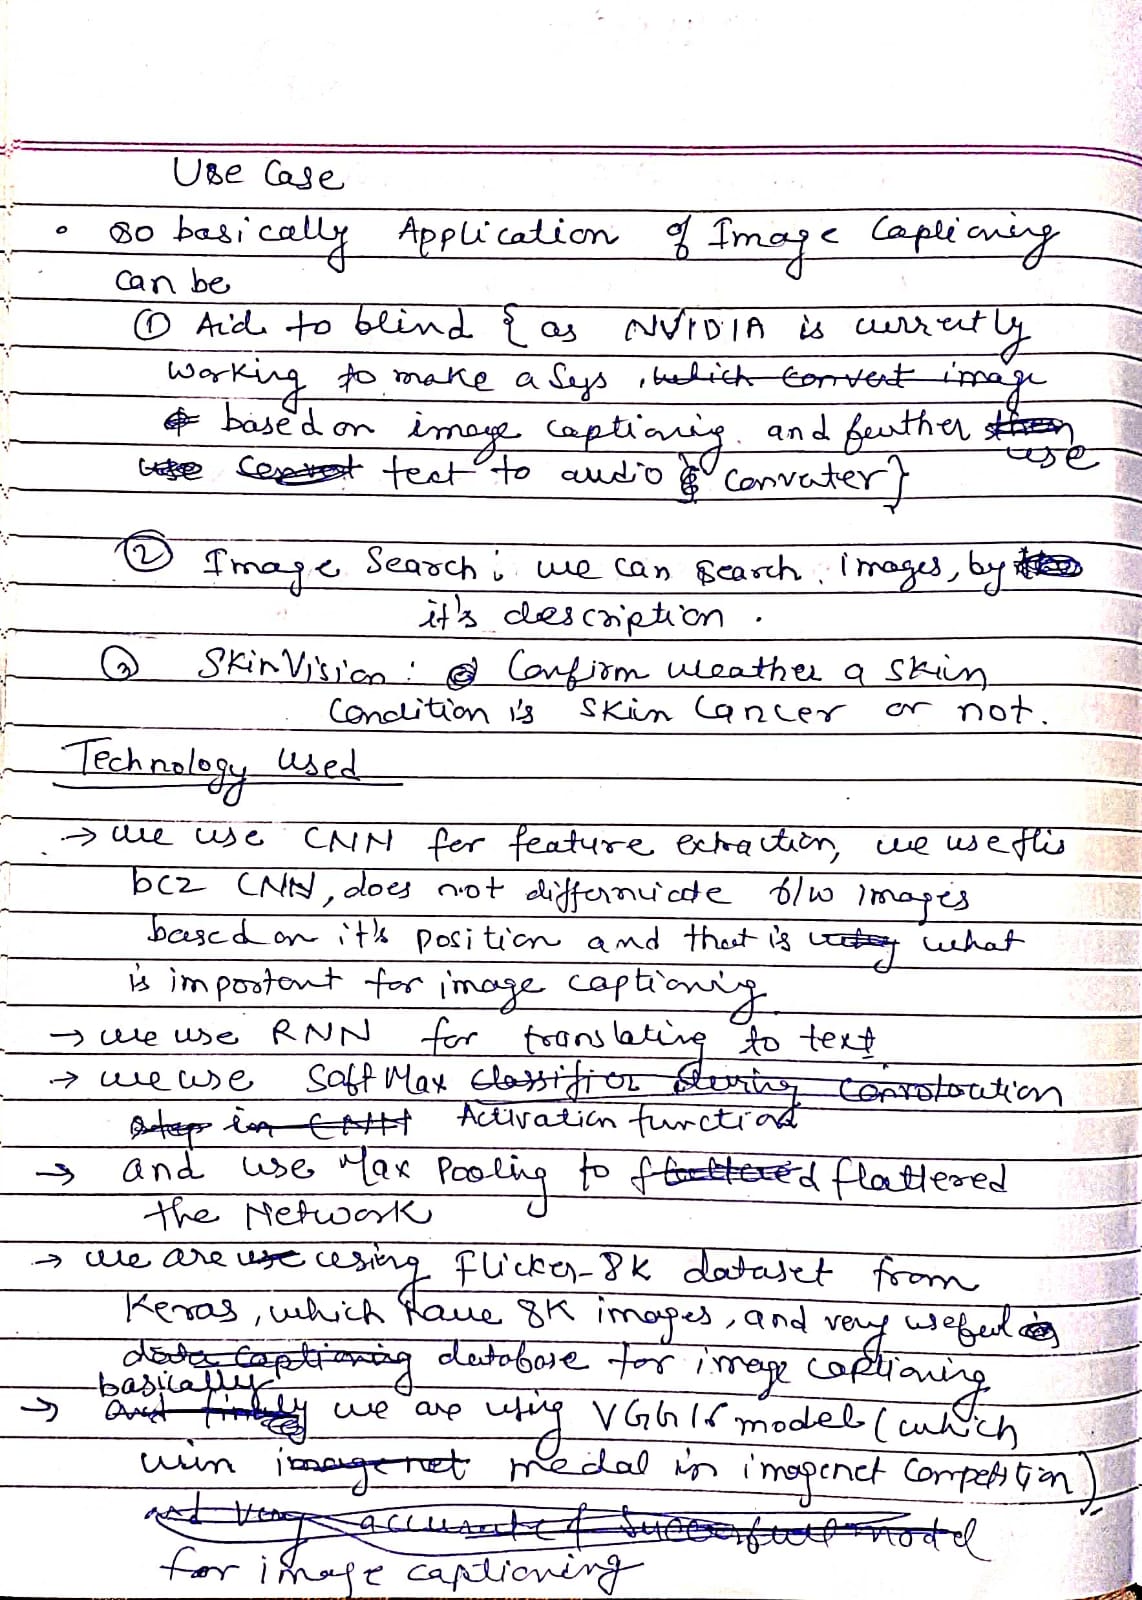 Use Case
• so basically Application of Image Captioning
can be
① Aid to blind { as NVIDIA is currently
working to make a Sys , which convert image
based on image captioning. and further then
use
use Convert text to audio convater}
② Image Search: we can search. images, by
it's description .
③ SkinVision: Confirm weather a skin
Condition is skin Cancer or not.
Technology used
→ we use CNN for feature extraction, we use this
bcz CNN, does not differniciate b/w images
based on it's position and that is what
is important for image captioning
→ we use RNN for translating to text
→ we use SoftMax classifier during convoloution
step in CNN Activation function
→ and use Max Pooling to flattered
the Network
→ we are use using Flicker-8K dataset from
Keras, which have 8K images, and very useful
data captioning database for image captioning
basically
→ And finally we are using VGG16 model (which
win imagenet medal in imagenet Competition)
and very accurate & Successful model
for image captioning